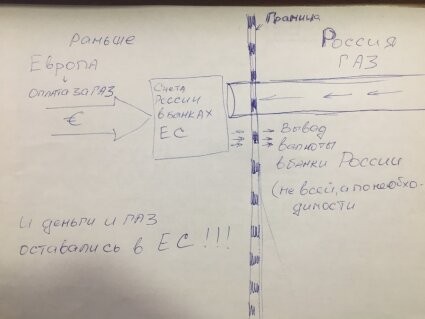 Раньше
Европа
Оплата за ГАЗ
€
Счета
России
в банках
ЕС
Граница
Россия
ГАЗ
Вывад
валюты
в банки России
(не всей, а по необхо-
димости
И деньги и ГАЗ
оставались в ЕС!!!